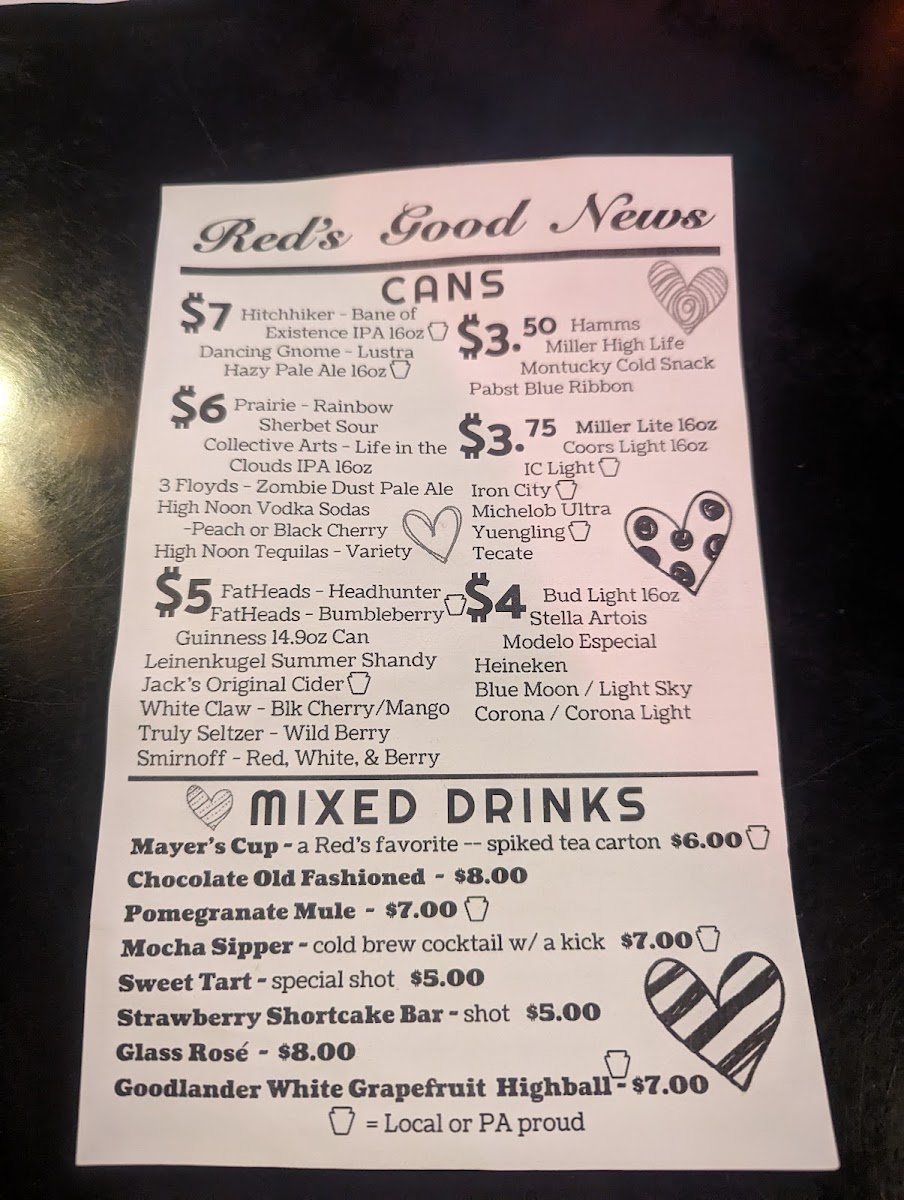 Red's Good News
CANS
$7 Hitchhiker - Bane of
Existence IPA 16oz
Dancing Gnome - Lustra
Hazy Pale Ale 16oz
$6 Prairie - Rainbow
Sherbet Sour
Collective Arts - Life in the
Clouds IPA 16oz
3 Floyds - Zombie Dust Pale Ale
High Noon Vodka Sodas
-Peach or Black Cherry
High Noon Tequilas - Variety
$5 FatHeads - Headhunter
FatHeads - Bumbleberry
Guinness 14.9oz Can
Leinenkugel Summer Shandy
Jack's Original Cider
White Claw - Blk Cherry/Mango
Truly Seltzer - Wild Berry
Smirnoff - Red, White, & Berry
$3.50 Hamms
Miller High Life
Montucky Cold Snack
Pabst Blue Ribbon
$3.75 Miller Lite 16oz
Coors Light 16oz
IC Light
Iron City
Michelob Ultra
Yuengling
Tecate
$4 Bud Light 16oz
Stella Artois
Modelo Especial
Heineken
Blue Moon / Light Sky
Corona / Corona Light
MIXED DRINKS
Mayer's Cup - a Red's favorite -- spiked tea carton $6.00
Chocolate Old Fashioned - $8.00
Pomegranate Mule - $7.00
Mocha Sipper - cold brew cocktail w/ a kick $7.00
Sweet Tart - special shot $5.00
Strawberry Shortcake Bar - shot $5.00
Glass Rosé - $8.00
Goodlander White Grapefruit Highball - $7.00
= Local or PA proud